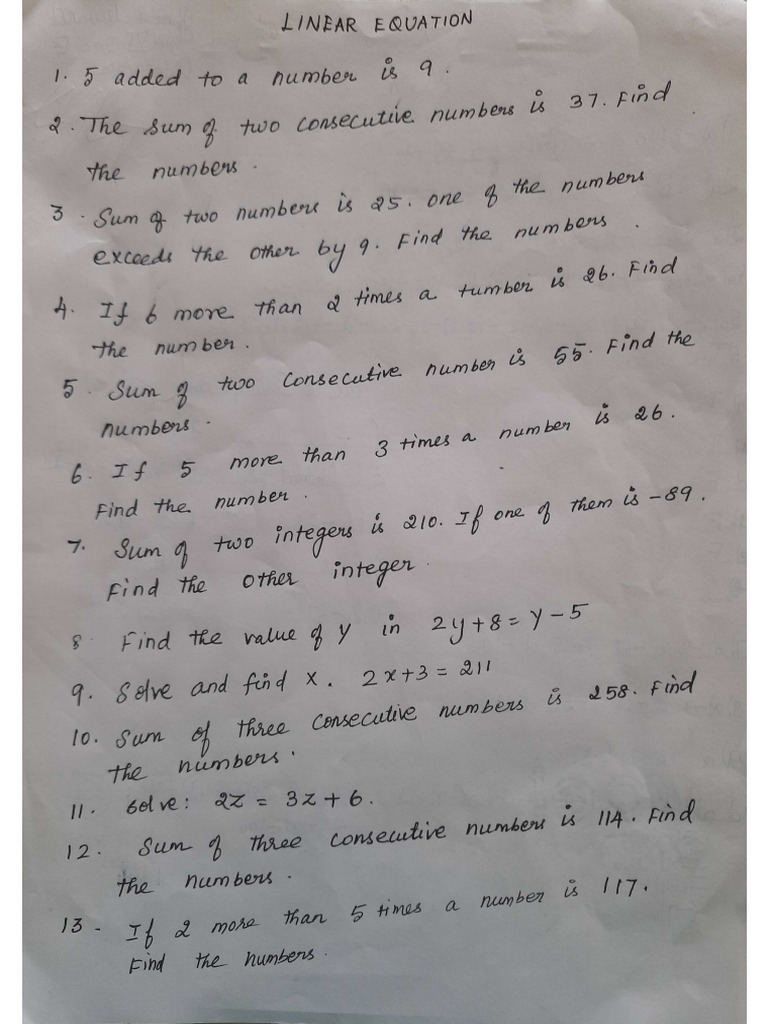 LINEAR EQUATION
1. 5 added to a number is 9.
2. The sum of two consecutive numbers is 37. Find
the numbers.
3. Sum of two numbers is 25. one of the numbers
exceeds the other by 9. Find the numbers.
4. If 6 more than 2 times a tumber is 26. Find
the number.
5. Sum of two consecutive number is 55. Find the
numbers.
6. If 5 more than 3 times a number is 26.
Find the number.
7. Sum of two integers is 210. If one of them is -89.
Find the other integer.
8 Find the value of y in 2y+8 = y-5
9. Solve and find x. 2x+3 = 211
10. Sum of three consecutive numbers is 258. Find
the numbers.
11. Solve: 2z = 3z + 6.
12. Sum of three consecutive numbers is 114. Find
the numbers.
13- If 2 more than 5 times a number is 117.
Find the numbers.